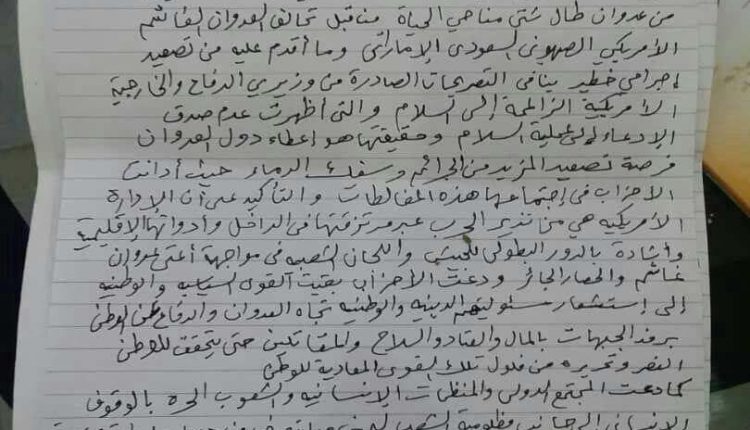 من عدوان طال شتى مناحي الحياة من قبل تحالف العدوان الغاشم
الأمريكي الصهيوني السعودي الإماراتي وما أقدم عليه من تصعيد
إجرامي خطير ينافي التصريحات الصادرة من وزيري الدفاع والخارجية
الأمريكية الزاعمة إلى السلام والتي أظهرت عدم صدق
الإدعاء إلى عملية السلام وحقيقتها هو إعطاء دول العدوان
فرصة تصعيد المزيد من الجرائم وسفك الدماء حيث أدانت
الأحزاب في إجتماعها هذه المغالطات والتأكيد على أن الإدارة
الأمريكيه هي من تدير الحرب عبر مرتزقتها في الداخل وأدواتها الإقليمية
وأشادة بالدور البطولي للجيش واللجان الشعبيه في مواجهة أعتى عدوان
غاشم والحصار الجائر ودعت الأحزاب بقيت القوى السياسيه والوطنيه
إلى إستشعار مسئوليتهم الدينيه والوطنيه تجاه العدوان والدفاع عن الوطن
برفد الجبهات بالمال والعتاد والسلاح والمقاتلين حتى يتحقق للوطن
النصر وتحريره من فلول تلك القوى المعادية للوطن
كما دعت المجتمع الدولي والمنظمات الإنسانيه والشعوب الحره بالوقوف
الإنساني إلى جانب مظلومية الشعب